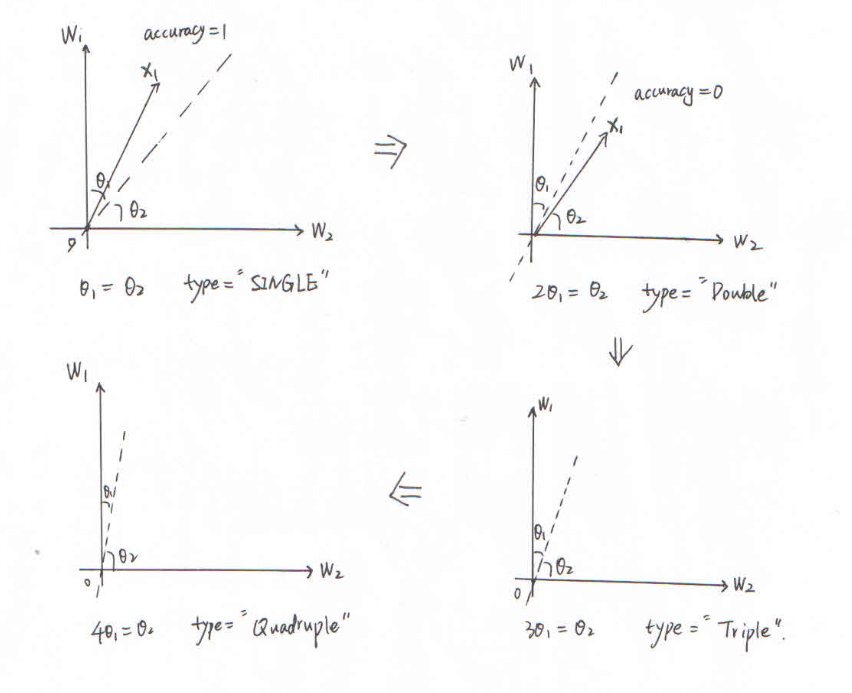 Wi
accuracy=1
X₁
θ₁
θ₂
W₂
o
θ₁ = θ₂ type="SINGLE"
⇒
W₁
accuracy=0
X₁
θ₁
θ₂
W₂
2θ₁ = θ₂ type="Double"
⇓
W₁
θ₁
θ₂
W₂
o
3θ₁ = θ₂ type="Triple".
⇐
W₁
θ₁
θ₂
W₂
o
4θ₁=θ₂ type="Quadruple"